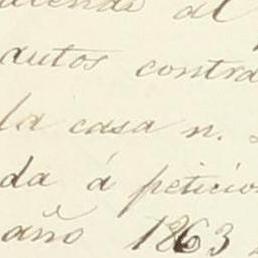 atende al
autos contra
la casa n.
da á peticion
año 1863